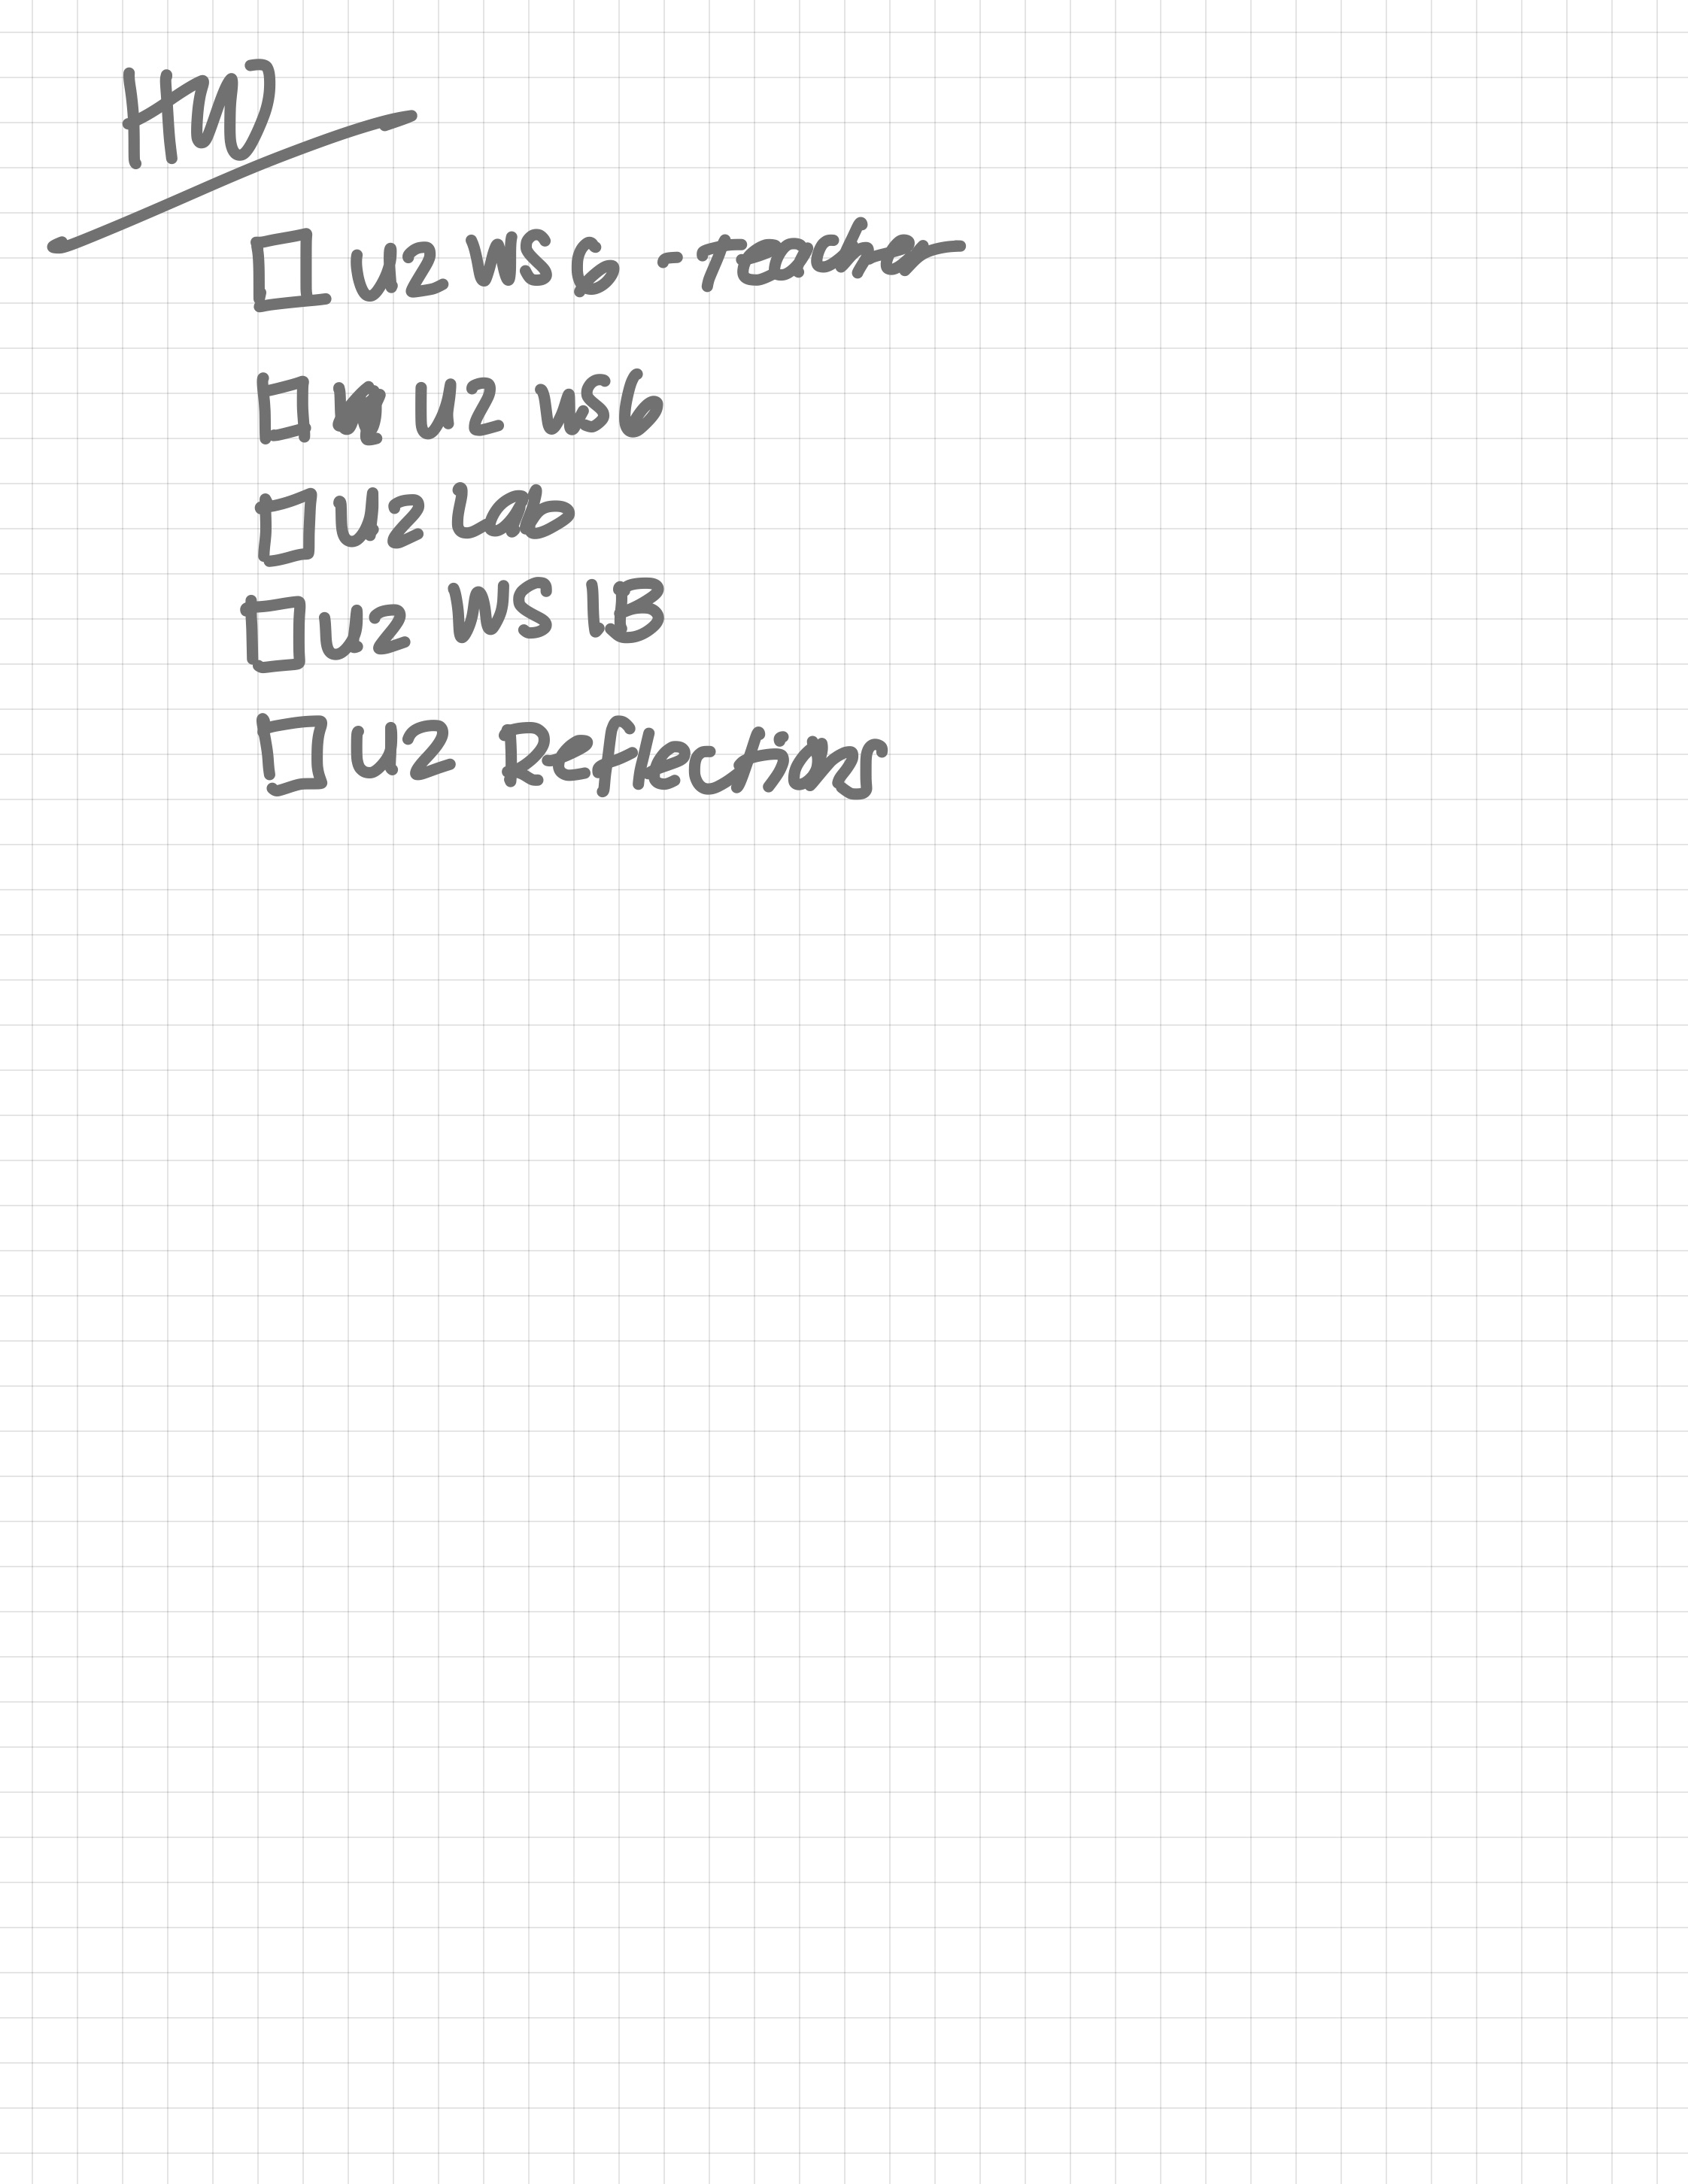 HW
U2 WS 6 - Teacher
U2 WS6
U2 Lab
U2 WS 1B
U2 Reflections